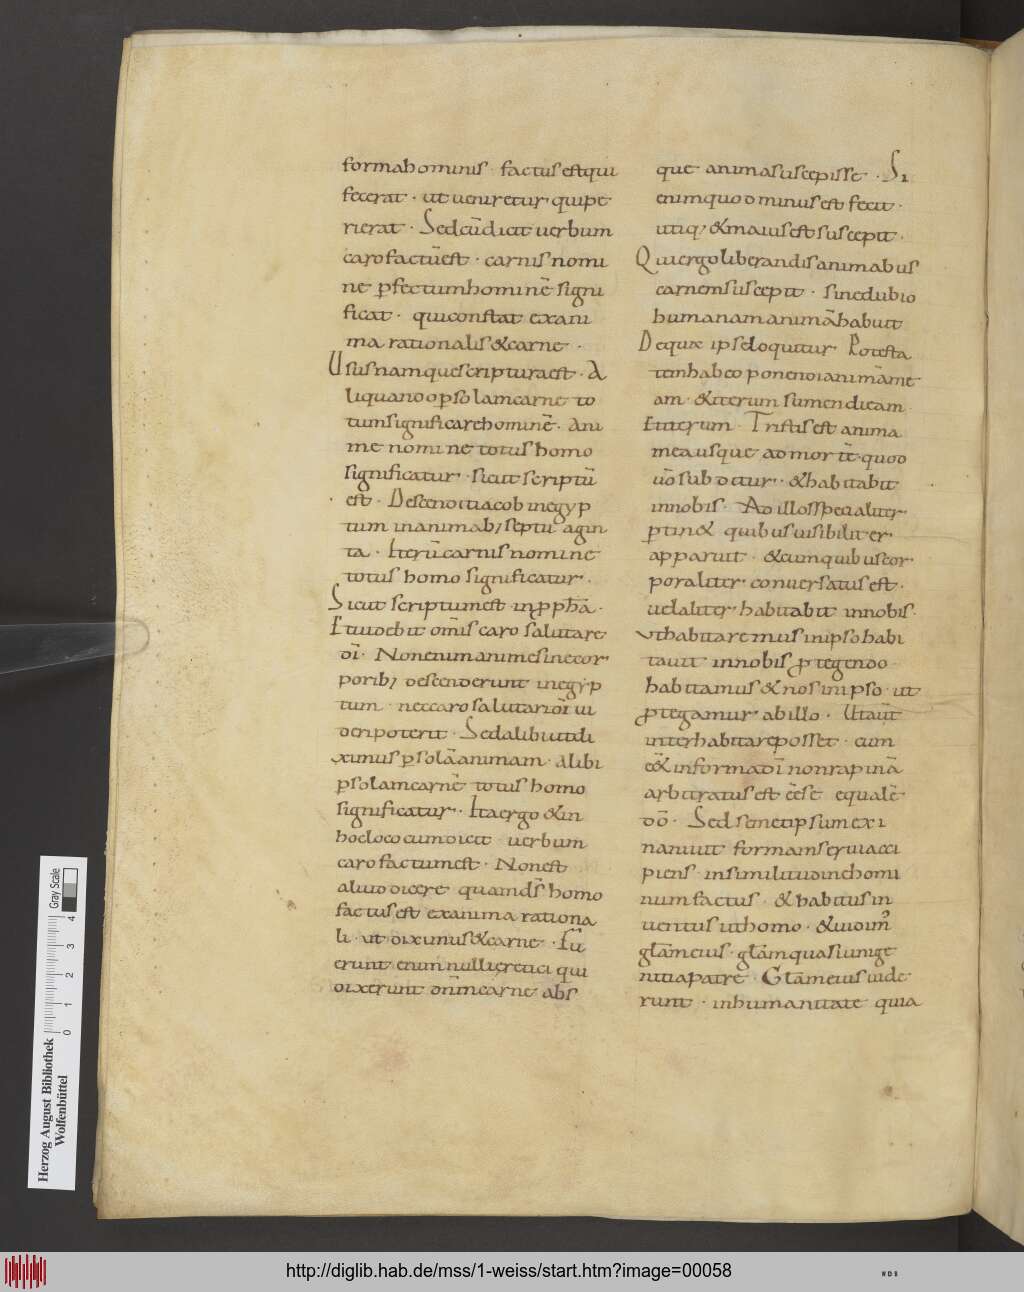 forma hominis · factus est qui
fecerat · ut ueniretur qui pe
rierat · Sed cū dicit uerbum
caro factū est · carnis nomi
ne ꝑfectum hominē signi
ficat · qui constat ex ani
ma rationalis & carne ·
Usus namque scriptura est · A
liquando ꝑ solam carnē to
tum significare hominē · Ani
me nomine totus homo
significatur · sicut scriptū
est · Descendit iacob in egyp
tum in animab; septuaginᵗ
ta · Iterū carnis nomine
totus homo significatur ·
Sicut scriptum est in ꝓpħa ·
Et uidebit om̄is caro salutare
dī · Non enim anime sine cor
porib; descenderunt in egyp
tum · nec caro salutari dī ui
deri poterit · Sed alibi uti di
ximus ꝑ solā animam · alibi
ꝑ solam carnē totus homo
significatur · Ita ergo & in
hoc loco cum dicit · uerbum
caro factum est · Non est
aliud dicere quam d̄s homo
factus est ex anima rationa
li · ut diximus & carne · Fū
erunt enim nulli eretici qui
dixerunt dn̄m carne abs
que anima suscepisse · Si
enim quod minus est fecit ·
utiq; & maius est suscepit ·
Qui uergo liberandis animabus
carnem suscepit · sine dubio
humanam animā habuit
De qua ipse loquitur Potesta
tem habeo ponendi animā me
am · & iterum sumendi eam
Et iterum · Tristis est anima
mea usque ad mortē · quod
ūo subditur · & habitabit
in nobis · Ad illos specialiter
ꝑtin& quibus uisibiliter
apparuit · & cum quibus cor
poraliter conuersatus est ·
uel aliter habitabit in nobis ·
ut habitaremus in ipso habi
tauit in nobis ꝓtegendo ·
habitamus & nos in ipso · ut
ꝓtegamur ab illo · Ut aūt
inter habitare posset · cum
e&̄ in forma dī non rapinā
arbitratus est ēe se equalē
dō · Sed semetipsum exi
naniuit formam serui acci
piens · in similitudine homi
num factus · & habitus in
uentus ut homo · & uidim⁹
glām eius · glām quasi unige
niti a patre · Glām eius uide
runt · in humanitate quia
Herzog August Bibliothek
Wolfenbüttel
0 1 2 3 4
Gray Scale
http://diglib.hab.de/mss/1-weiss/start.htm?image=00058